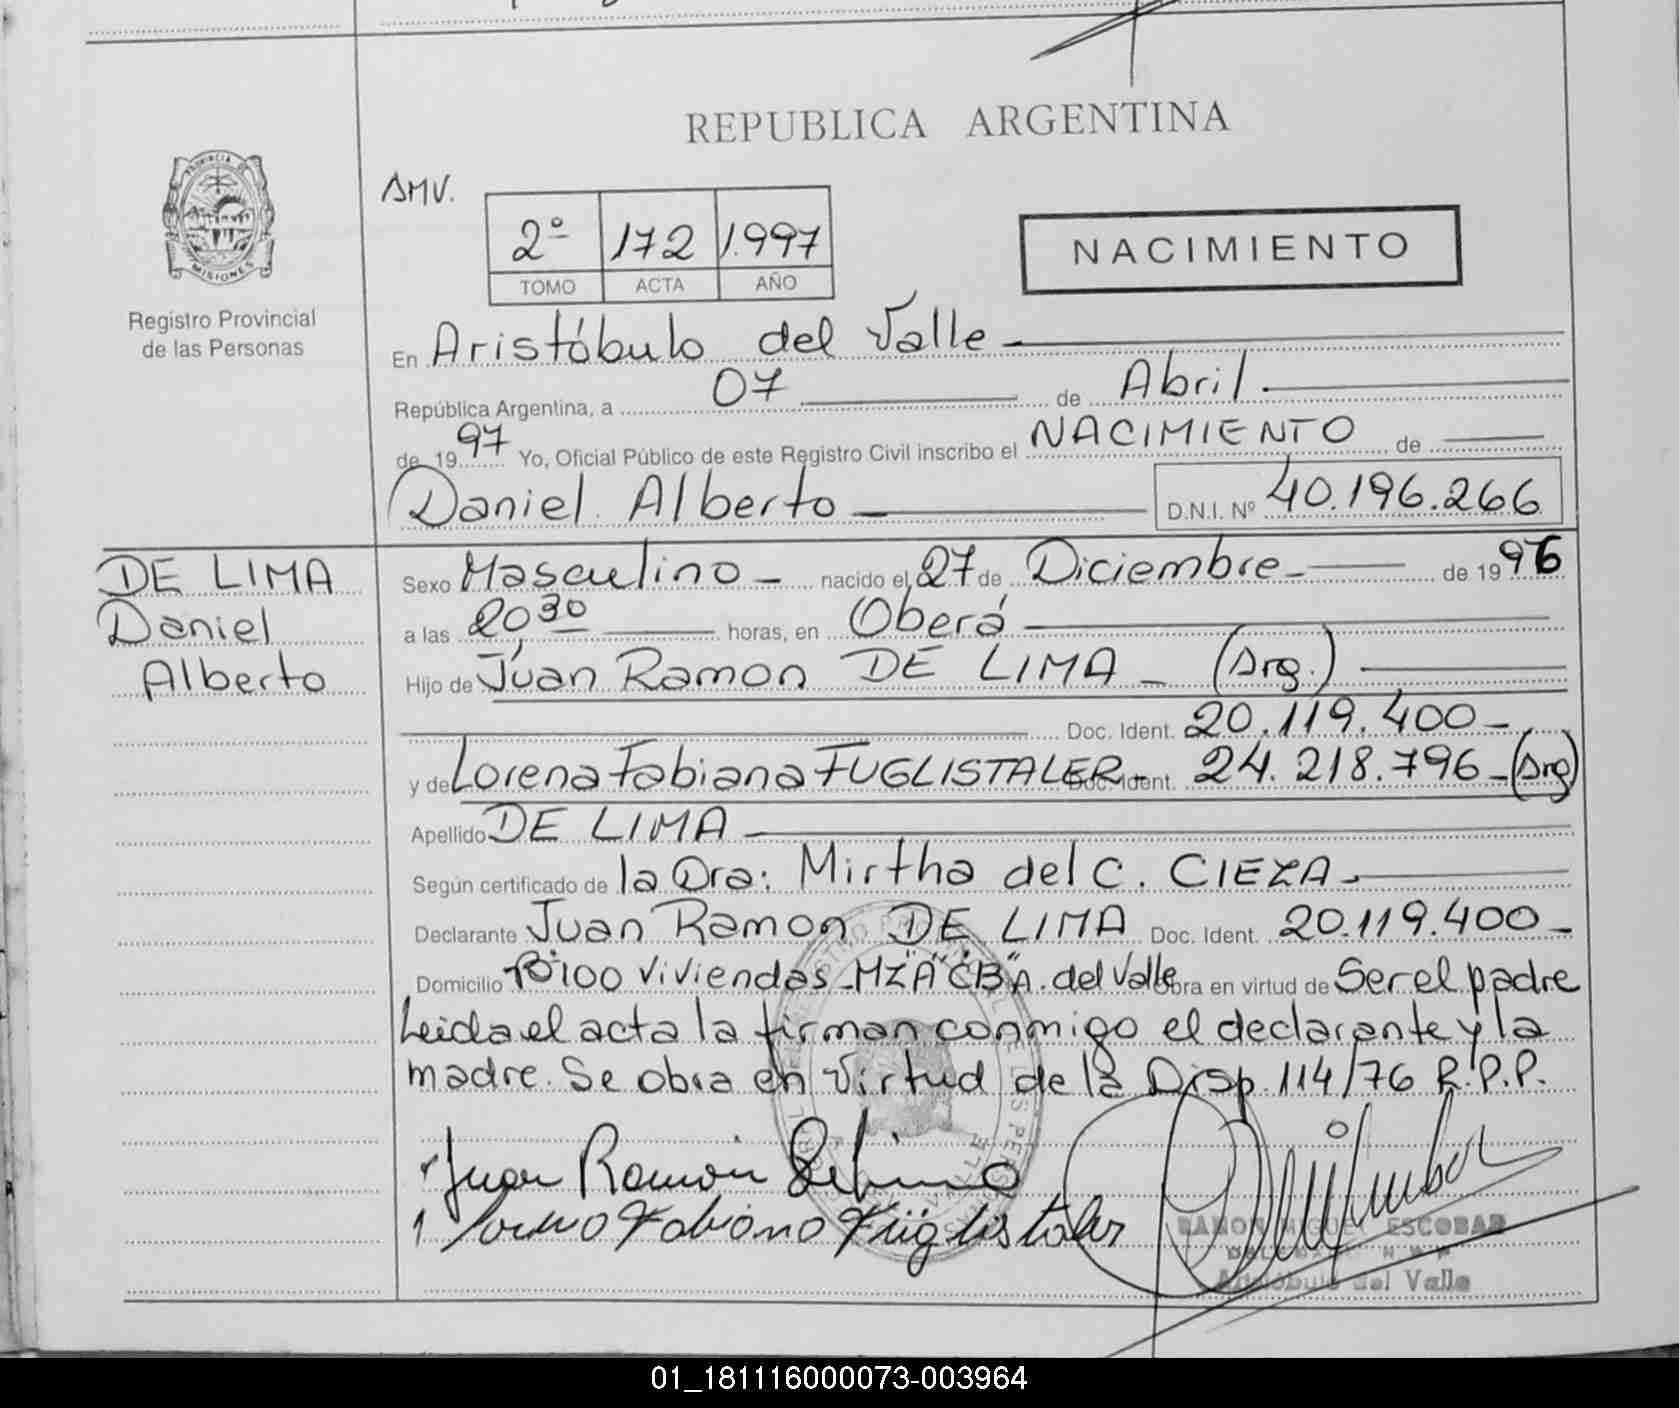 REPUBLICA ARGENTINA
PROVINCIA DE
MISIONES
Registro Provincial
de las Personas
AMV.
2º 172 1.997
TOMO ACTA AÑO
NACIMIENTO
En Aristóbulo del Valle
República Argentina, a 07 de Abril
de 1997 Yo, Oficial Público de este Registro Civil inscribo el NACIMIENTO de
Daniel Alberto D.N.I. Nº 40.196.266
DE LIMA
Daniel
Alberto
Sexo Masculino nacido el 27 de Diciembre de 1996
a las 20,30 horas, en Oberá
Hijo de Juan Ramon DE LIMA (Arg.)
Doc. Ident. 20.119.400
y de Lorena Fabiana FUGLISTALER Doc. Ident. 24.218.796 (Arg)
Apellido DE LIMA
Según certificado de la Dra: Mirtha del C. CIEZA
Declarante Juan Ramon DE LIMA Doc. Ident. 20.119.400
Domicilio Bº 100 Viviendas MZ "A" C "B" A. del Valle Obra en virtud de Ser el padre
Leida el acta la firman conmigo el declarante y la
madre. Se obra en virtud de la Disp. 114/76 R.P.P.
Juan Ramon Delima
Lorena Fabiana Füglistaler
RAMON MIGUEL ESCOBAR
Aristóbulo del Valle
01_181116000073-003964